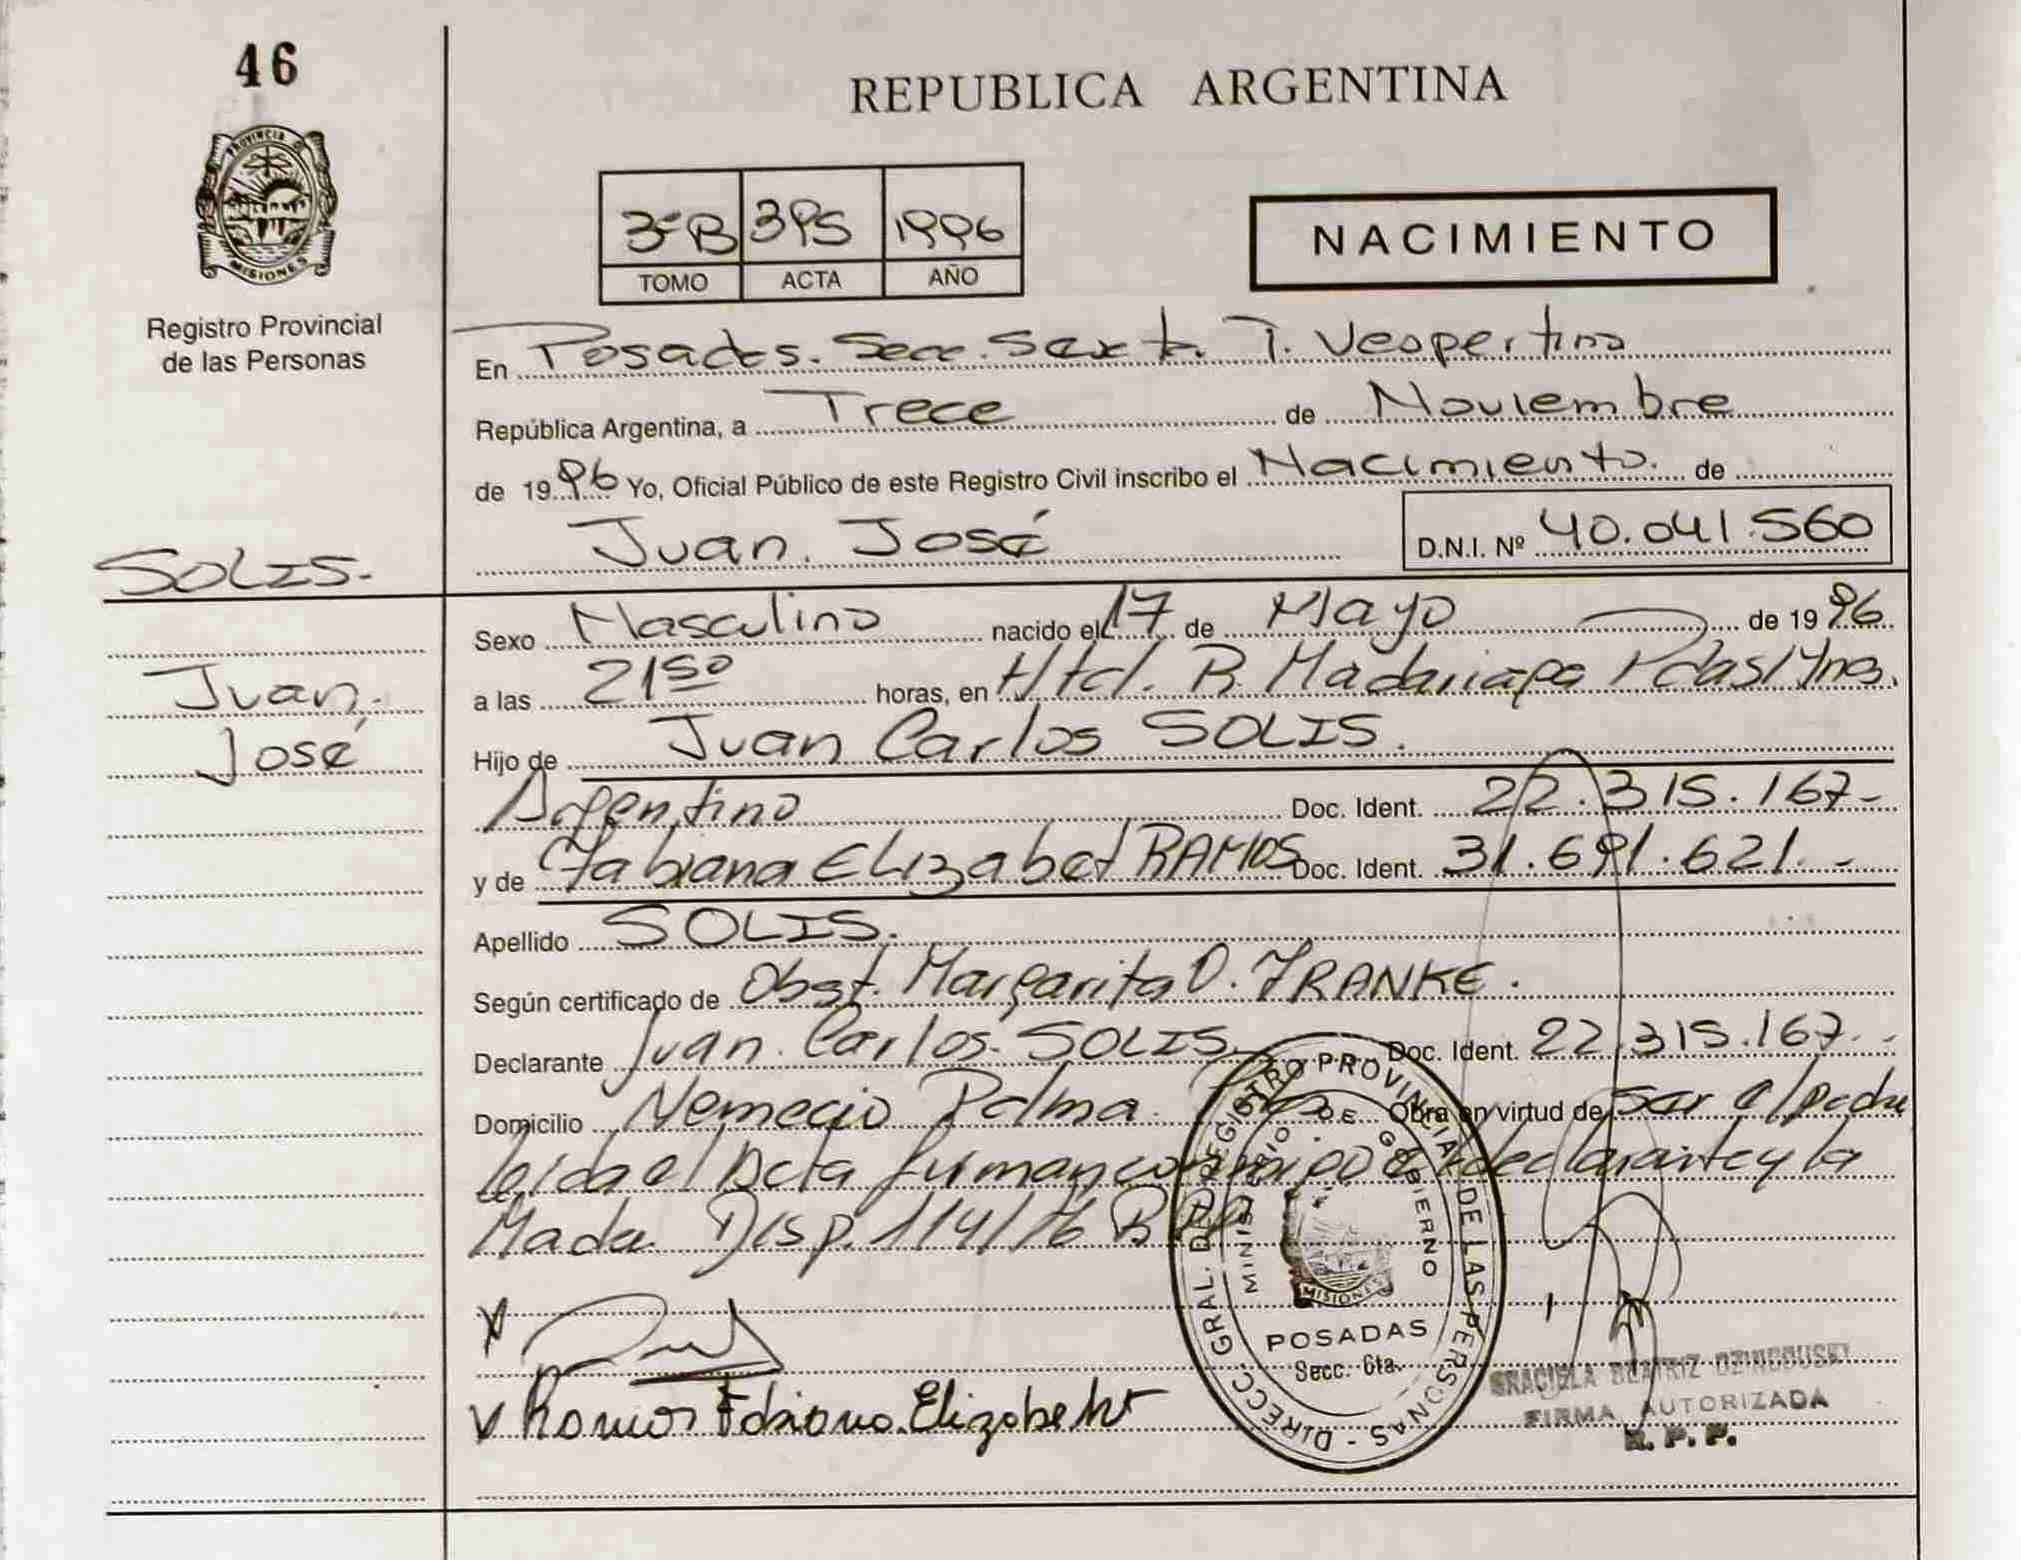 46
REPUBLICA ARGENTINA
PROVINCIA D
MISIONES
Registro Provincial
de las Personas
3º B 395 1996
TOMO ACTA AÑO
NACIMIENTO
En Posadas. Secc. Sexta. T. Vespertino
República Argentina, a Trece de Noviembre
de 1996 Yo, Oficial Público de este Registro Civil inscribo el Nacimiento. de
Juan. José D.N.I. Nº 40.041.560
SOLIS.
Juan,
José
Sexo Masculino nacido el 17 de Mayo de 1996
a las 21 50 horas, en Htal. R. Madariaga Pdas/Mnes.
Hijo de Juan Carlos SOLIS.
Argentino Doc. Ident. 22.315.167-
y de Fabiana ELIZabet RAMOS Doc. Ident. 31.691.621.-
Apellido SOLIS.
Según certificado de Obst. Margarita O. FRANKE.
Declarante Juan. Carlos. SOLIS. Doc. Ident. 22.315.167.-
Domicilio Nemecio Palma. Obra en virtud de ser el padre
leída el Acta firman conmigo el declarante y la
Madre Disp. 114/96
Ramos Fabiana. Elizabeht
DIRECC. GRAL. DEL REGISTRO PROVINCIAL DE LAS PERSONAS -
MINISTERIO DE GOBIERNO
MISIONES
POSADAS
Secc. 6ta.
GRACIELA BEATRIZ
FIRMA AUTORIZADA
R. P. P.